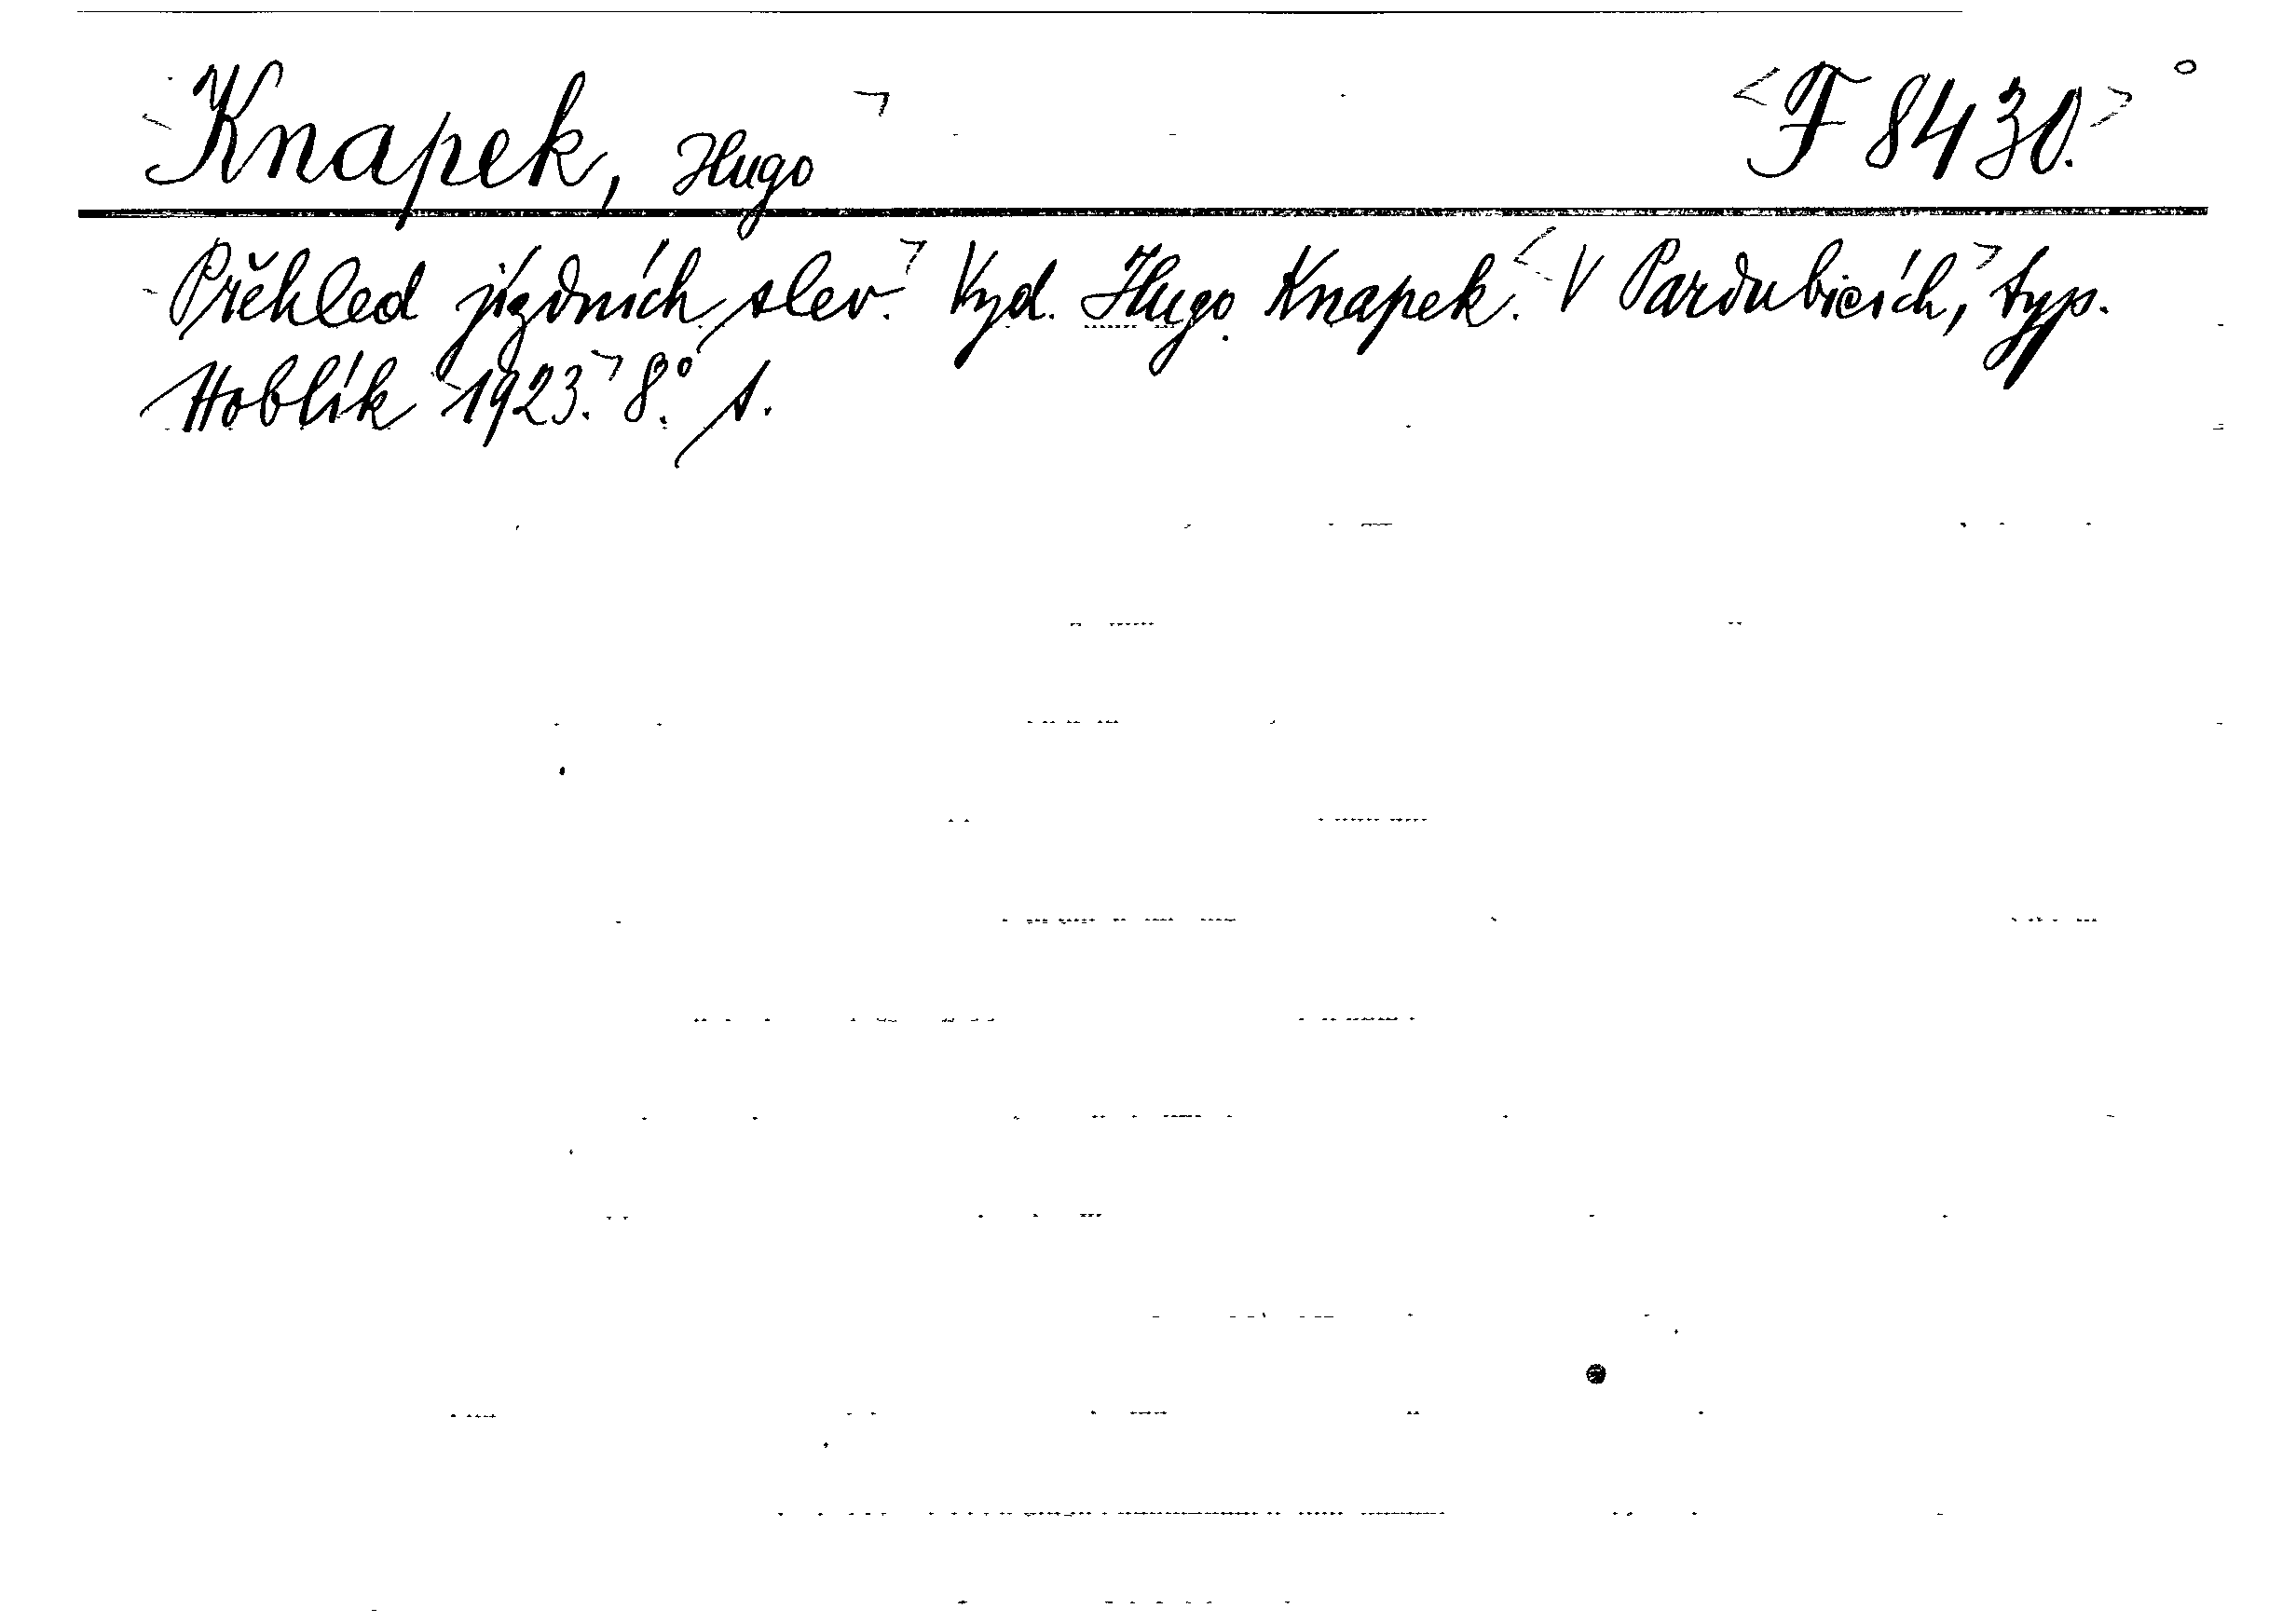 Knapek, Hugo F 8430.
Přehled jízdních slev. Vyd. Hugo Knapek. V Pardubicích, typ.
Hoblík 1923. 8.° s.